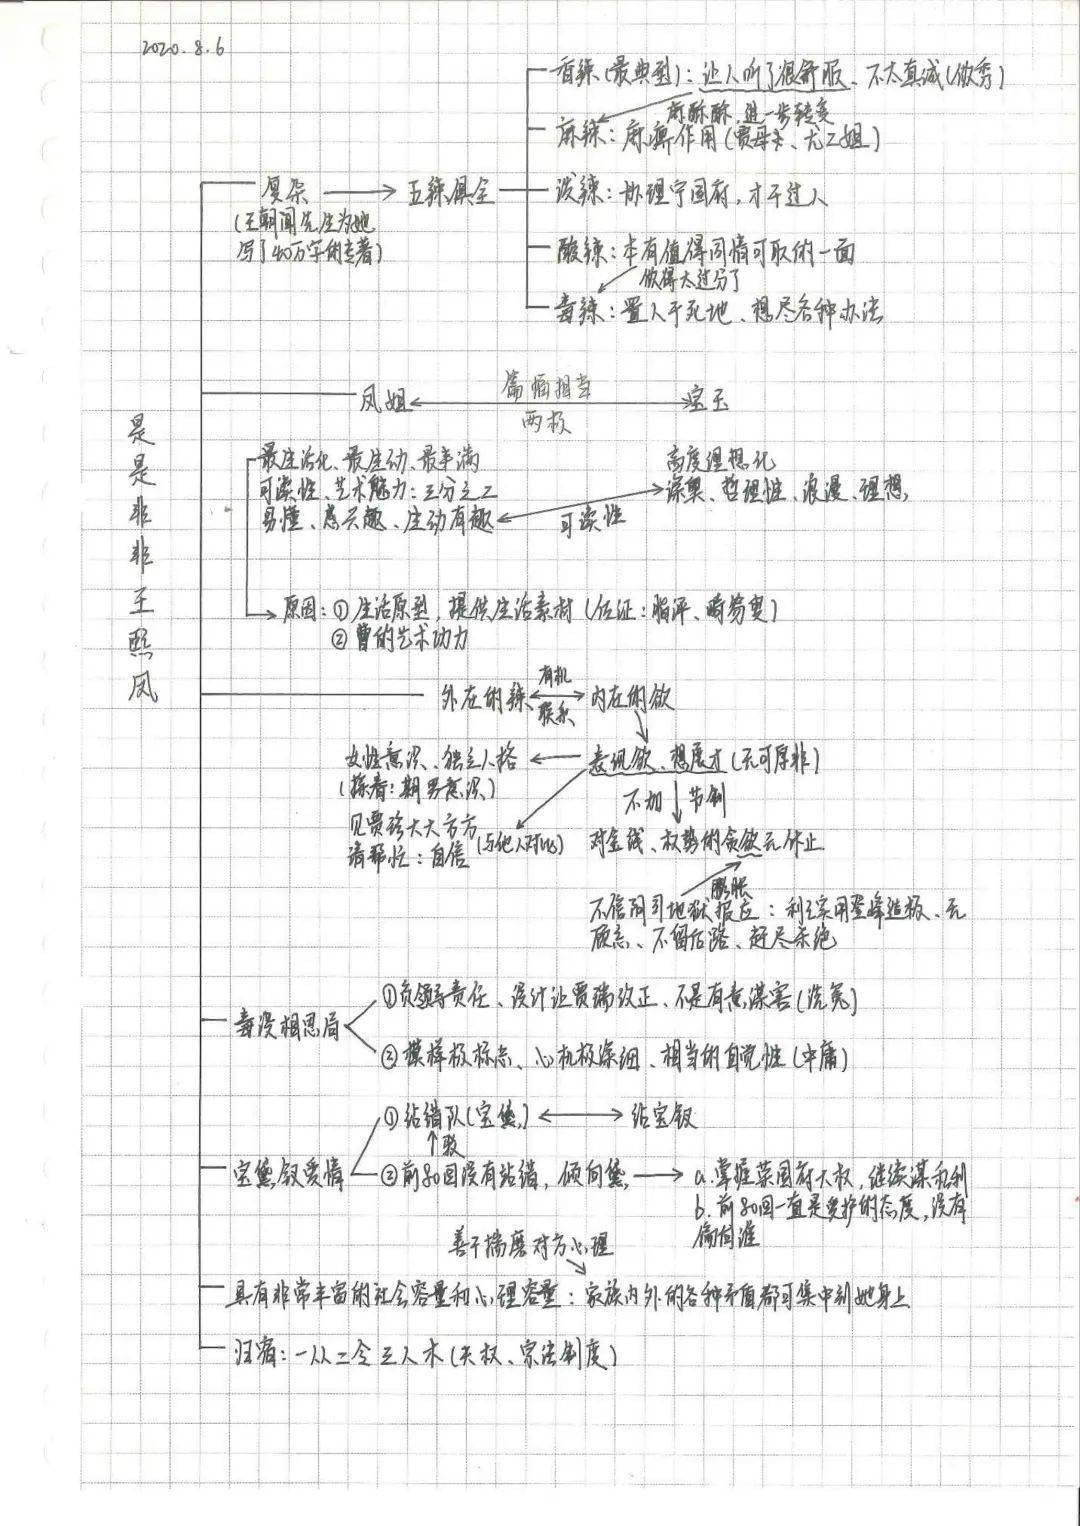 2020.8.6
是是非非王熙凤
复杂 → 五辣俱全
(王朝闻先生为她
写了40万字的专著)
香辣(最典型)：让人听了很舒服、不太真诚(做秀)
麻酥酥，进一步转变
麻辣：麻痹作用(贾母、尤二姐)
泼辣：协理宁国府，才干过人
酸辣：本有值得同情可取的一面
做得太过分了
毒辣：置人于死地、想尽各种办法
凤姐 ↔ 宝玉
篇幅相当
两极
最生活化、最生动、最丰满
可读性、艺术魅力：三分之二
易懂、感兴趣、生动有趣
可读性
高度理想化
深奥、哲理性、浪漫、理想
原因：① 生活原型，提供生活素材 (佐证：脂评、
② 曹的艺术功力
外在的辣 ↔ 内在的欲
有机
联系
女性意识、独立人格 ← 表现欲、想展才 (无可厚非)
(探春：期男意识)
不加 ↓ 节制
见贾珍大大方方
请帮忙：自信
(与他人对比)
对金钱、权势的贪欲无休止
膨胀
不信阴司地狱报应：利己实用登峰造极、无
顾忌、不留后路、赶尽杀绝
毒设相思局
①负领导责任、设计让贾瑞改正、不是有意谋害(洗冤)
②模样极标志、心机极深细、相当的自觉性(中庸)
宝黛钗爱情
①站错队(宝黛) ↔ 站宝钗
↑驳
②前80回没有站错，倾向黛 → a.掌握荣国府大权，继续谋私利
b.前80回一直是爱护的态度，没有
偏向谁
善于揣磨对方心理
具有非常丰富的社会容量和心理容量：家族内外的各种矛盾都可集中到她身上
归宿：一从二令三人木(夫权、宗法制度)